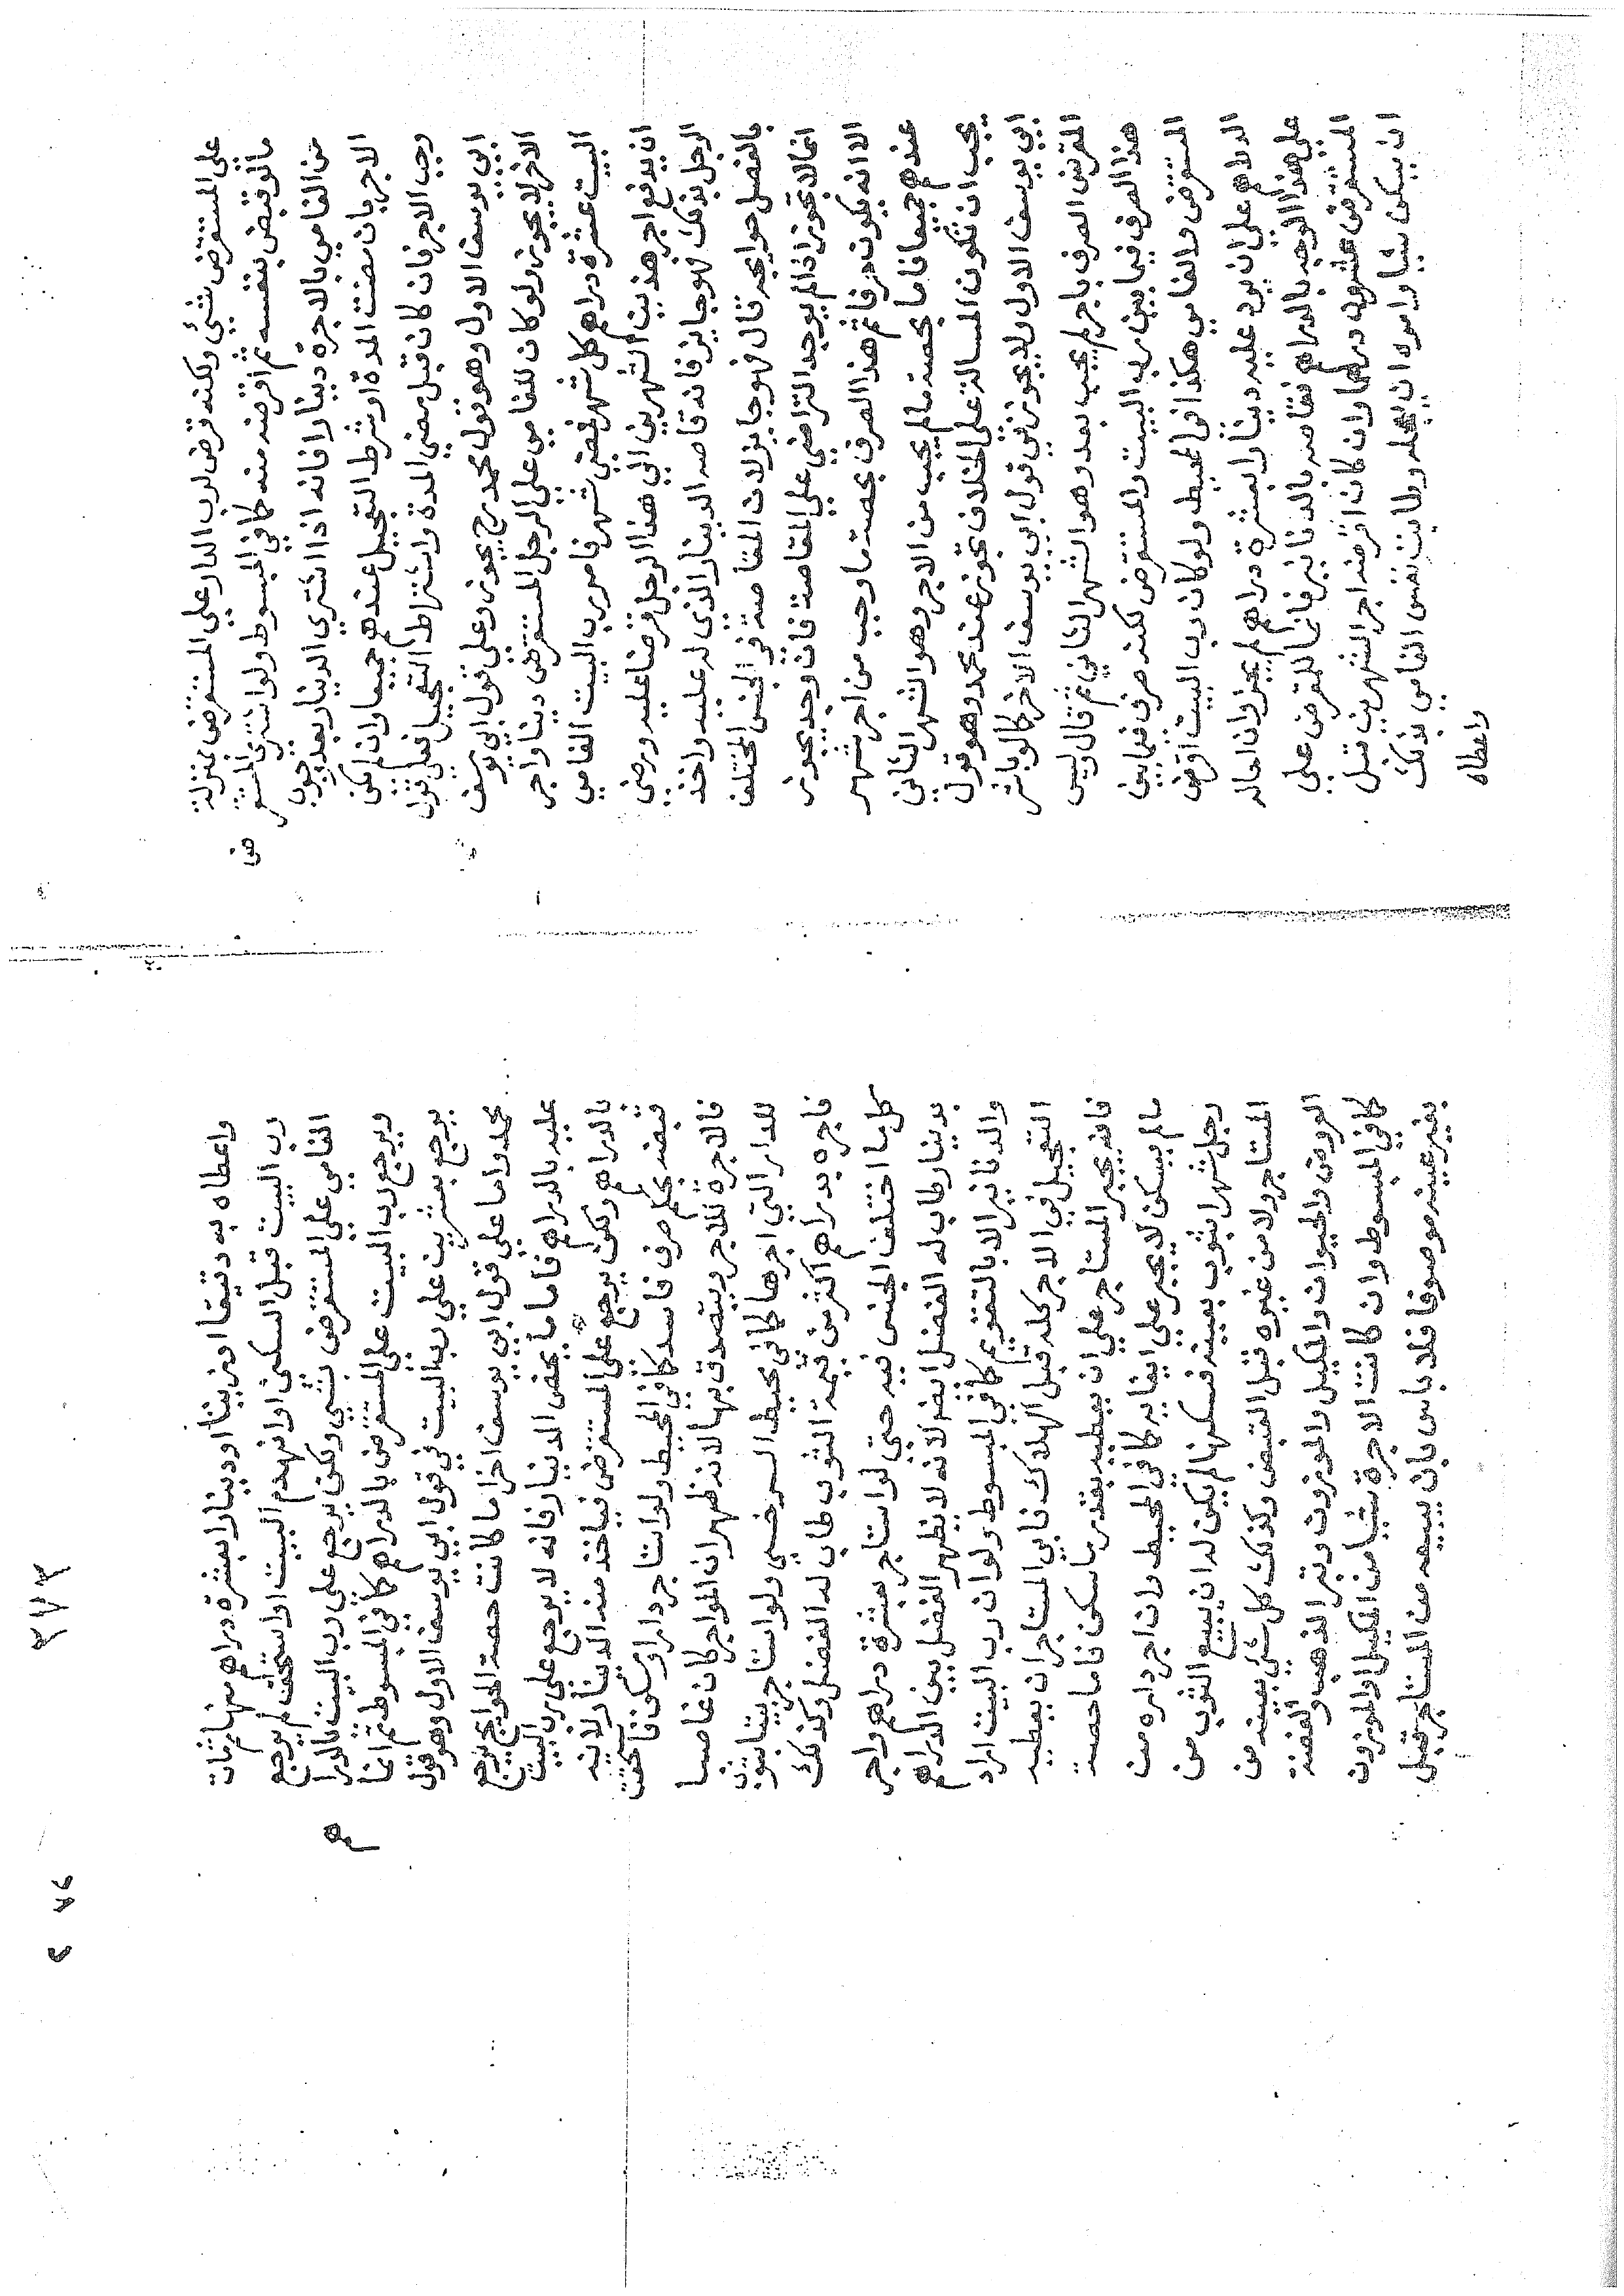 على المستقرض شيئ ولكنه قرض لرب الدار على المستقرض بمنزلة
ما لو قبض بنفسه ثم أقرضه منه كما في المبسوط ولو اشترى المستقرض
من الفامي بالاجرة دينارا فانه اذا اشتري الدينار بعد وجوب
الاجر بان مضت المدة او شرط التعجيل عندهم جميعا وان لم يكن
وجب الاجر فان كان قبل مضي المدة واشتراط التعجيل فعلي قول
ابي يوسف الاول وهو قول محمد رح يجوز وعلي قول ابي يوسف
الاخر لا يجوز ولو كان للفامي علي الرجل المستقرض دينار واجر
البيت عشرة دراهم كل شهر فمضي شهر فامر رب البيت الفامي
ان يدفع اجر هذين الشهرين الي هذا الرجل قرضا عليه ورضي
الرجل بذلك فهو جايز فانه قاصه الدينار الذي له عليه واخذ
بالفضل حوايجه قال فهو جايز لان المقاصة في الجنس المختلف
انما لا تجوز اذا لم يوجد التراضي علي المقاصة فان وجد يجوز
الا انه يكون صرفا ثم هذا الصرف بحصة ما وجب من اجر شهر
عندهم جميعا فاما بحصة ما لم يجب من الاجر وهو الشهر الثاني
يجب ان تكون المسالة على الخلاف تجوز عند محمد وهو قول
ابي يوسف الاول ولا يجوز في قول ابي يوسف الاخر كالو باشر
المقرض الصرف باجر لم يجب بعد وهو الشهر الثاني ثم قال وليس
هذا الصرف فيما بين رب البيت والمستقرض لكنه صرف فيما بين
المستقرض والفامي هكذا في المحيط ولو كان رب البيت اقرض
الدراهم علي ان يرد عليه دينارا بعشرة دراهم لم يجز وان احاله
علي هذا الوجه بالدراهم فقاصه بالدنانير فانما للمقرض علي
المستقرض عشرون درهما وان كان اقرضه اجر الشهرين قبل
ان يسكن شيا وامره ان يعجله وطابت نفس الفامي بذلك
واعطاه
واعطاه به دقيقا او زيتا او دينارا بعشرة دراهم منها ثم مات
رب البيت قبل السكنى او انهدم البيت او استحق لم يرجع
الفامي علي المستقرض بشي ولكن يرجع علي رب البيت بالدرا
هم
ويرجع رب البيت علي المستقرض بالدراهم كما في المبسوط ثم انما
يرجع بعشرين علي رب البيت في قول ابي يوسف الاول وهو قول
محمد واما علي قول ابي يوسف اخرا ما كانت حصة الحوايج يرجع
عليه بالدراهم فاما ما يخص الدينار فانه لا يرجع علي رب البيت
بالدراهم ولكن يرجع علي المستقرض فياخذ منه الدينار لانه
قبضه بحكم صرف فاسد كما في المحيط ولو استاجر دارا وسكن فاستحقت
فالاجرة للاجر ويتصدق بها لانه ظهر ان المواجر كان غاصبا
للدار التي اجرها كما في محيط السرخسي ولو استاجر بيتا بثوب
فاجره بدراهم اكثر من قيمة الثوب طاب له الفضل وكذلك
كل ما اختلف الجنس فيه حتي لو استاجر بعشرة دراهم واجر
بدينار طاب له الفضل ايضا لانه لا يظهر الفضل بين الدراهم
والدنانير الا بالتقويم كما في المبسوط ولو ان رب البيت اراد
التعجيل في الاجر كله قبل الهلاك فابي المستاجر ان يعطيه
فانه يجبر المستاجر علي ان يعطيه بقدر ما سكن فاما حصة
ما لم يسكن لا يجبر علي ايفايه كما في المحيط وان اجر داره من
رجل شهرا بثوب بعينه فسكنها لم يكن له ان يبيع الثوب من
المستاجر ولا من غيره قبل القبض وكذلك كل شيئ بعينه من
العروض والحيوان والمكيل والموزون وتبر الذهب والفضة
كما في المبسوط وان كانت الاجرة شيا من المكيل او الموزون
بغير عينه موصوفا فلا باس بان يبيعه من المستاجر قبل